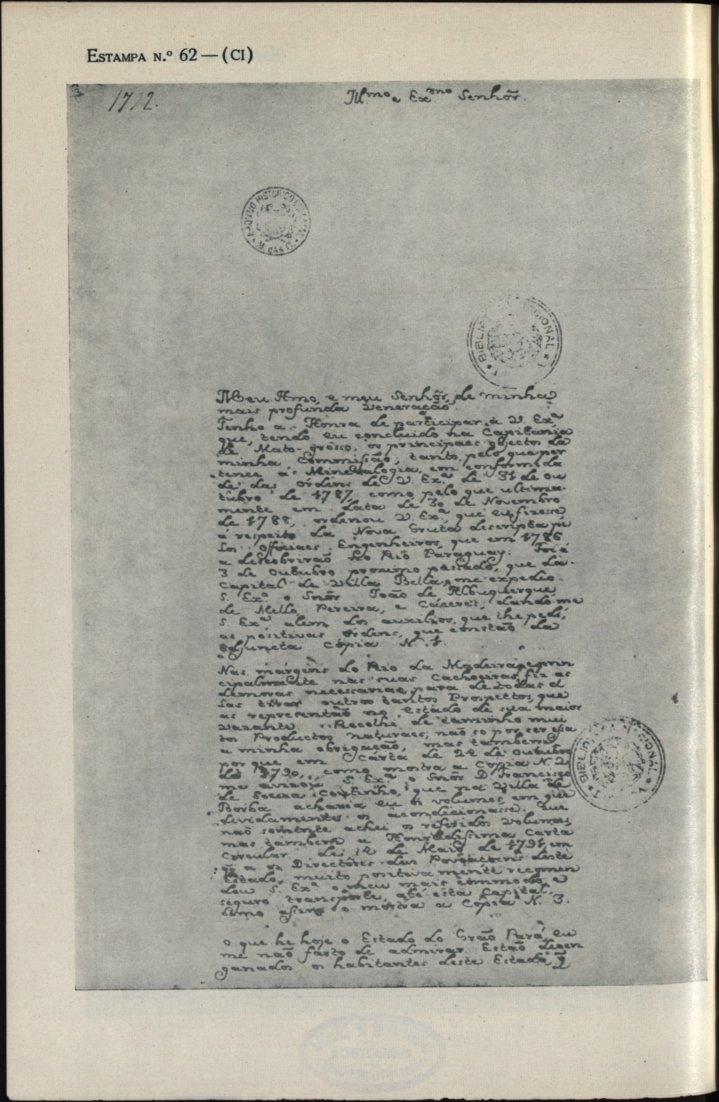 ESTAMPA N.º 62 — (CI)
3
1792.
Illmo e Exmo Senhõr.
ARQUIVO HISTÓRICO
BIBLIOTECA NACIONAL
Meu Amo, e meu Senhõr, de minha
mais profunda veneração.
Tenho a Honra de participar, á V. Exª
que, tendo eu concluido na Capitania
de Mato-grosso, os principaes objectos da
minha Commissão, tanto pelo que per
tence á Mineralogia, em conformida
de das Ordens de V. Exª de 31 de Ou
tubro de 1787, como pelo que ultima-
mente em data de 30 de Novembro
de 1788, ordenou V. Exª, que eu fizesse
á respeito da Nova Gruta descripta pe
los Officiaes Engenheiros, que em 1786
a descobrirão do Rio Paraguay: Foi á
3 de Outubro proximo passado, que da
Capital de Villa Bella me expedio
S. Exª o Snõr João de Albuquerque
de Mello Pereira, e Cáceres, dando-me
S. Exª alem dos auxilios, que lhe pedi,
as positivas Ordens, que constão da
adjuncta Copia N. 1.
Nas márgens do Rio da Madeira, e prin
cipalmente nas suas Cachoeiras, fiz as
demoras necessarias, para de todas el
las tirar outros tantos Prospettos, que
as representão no Estado de sua maior
vazante. Recolhi de caminho mui
tos Productos Naturaes, não so por ser essa
a minha obrigação, mas tambem
por que em Carta de 24 de Outubro
de 1790, como mostra a Copia N. 2
me avisou S. Exª o Snõr D. Francisco
de Souza Coutinho, que na Villa de
Borba acharia eu os volumes, em que
devidamente os acondicionasse. Que
não somente achei os referidos Volumes,
mas tambem a Honradissima Carta
Circular de 12 de Maio de 1791, em
q̃ a os Directores das Povoaçoens deste
Estado, muito positivamente recomen
dou S. Exª o meu mais cómmodo, e
seguro transporte, até esta Capital,
como assim o mostra a Copia N. 3.
O que he hoje o Estado do Grão Pará, eu
me não farto de admirar. Estão desen
ganados os habitantes deste Estado, q̃
BIBLIOTECA NACIONAL